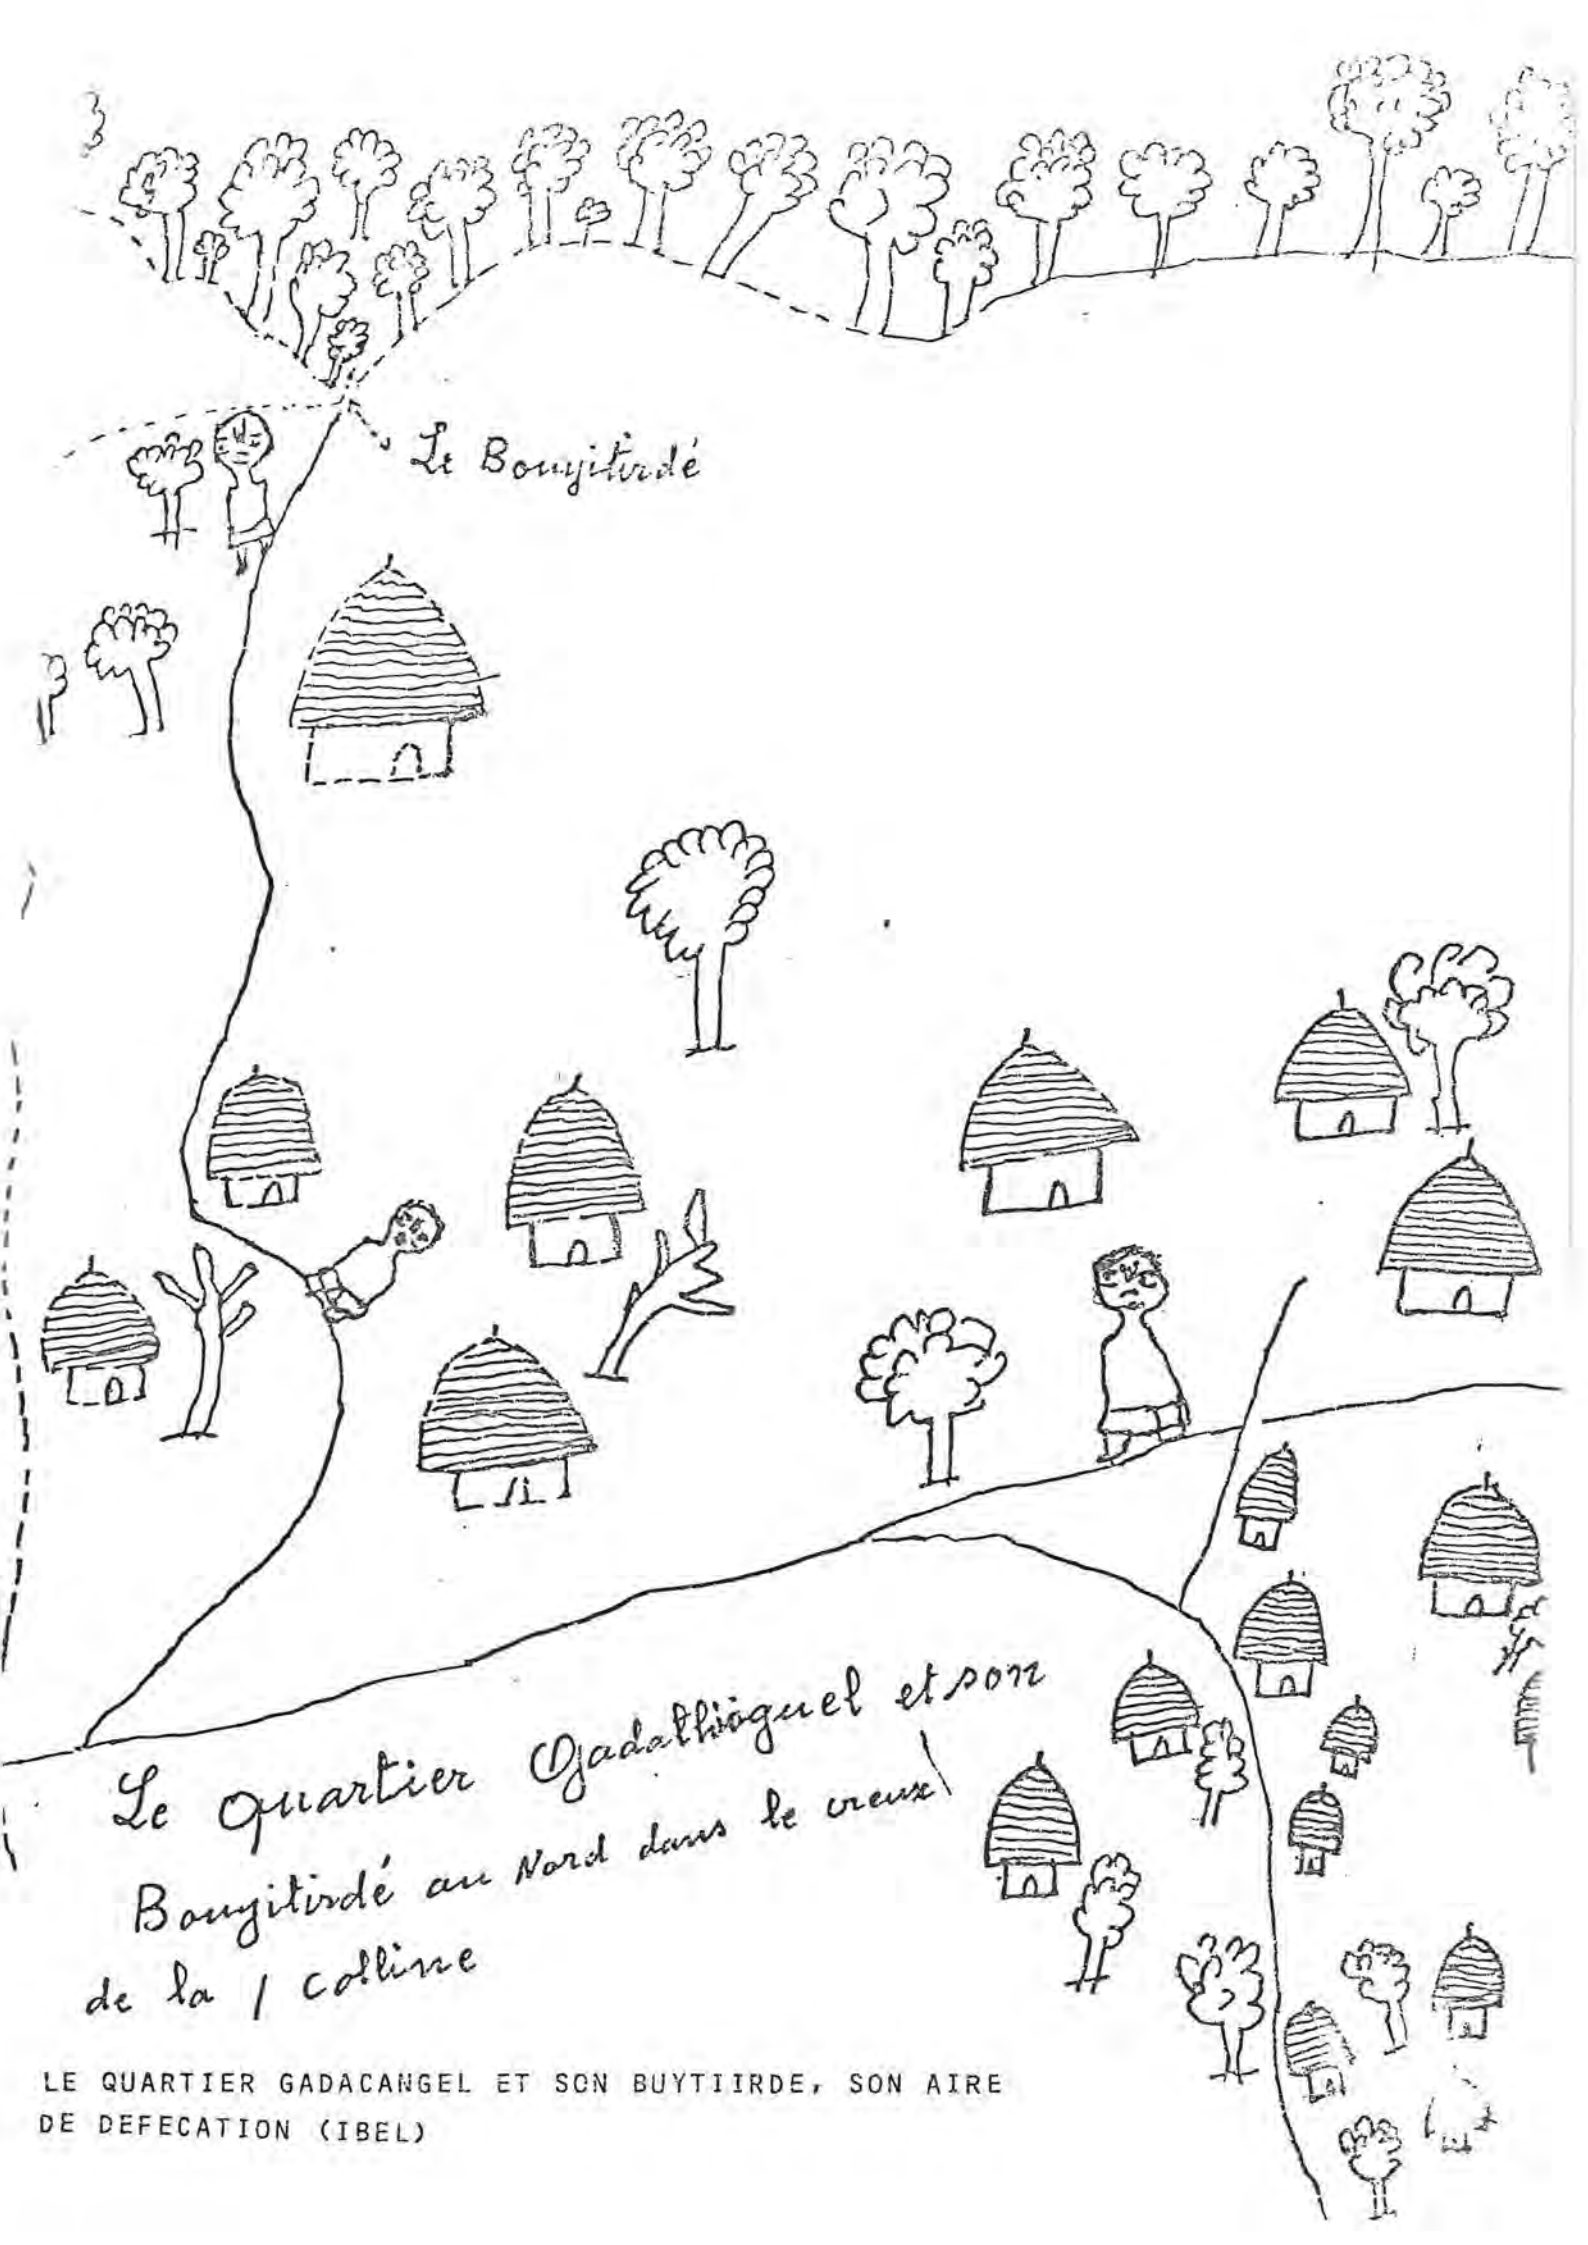 Le Bouyitirdé
Le quartier Gadathioguel et son
Bouyitirdé au Nord dans le creux
de la / colline
LE QUARTIER GADACANGEL ET SON BUYTIIRDE, SON AIRE
DE DEFECATION (IBEL)